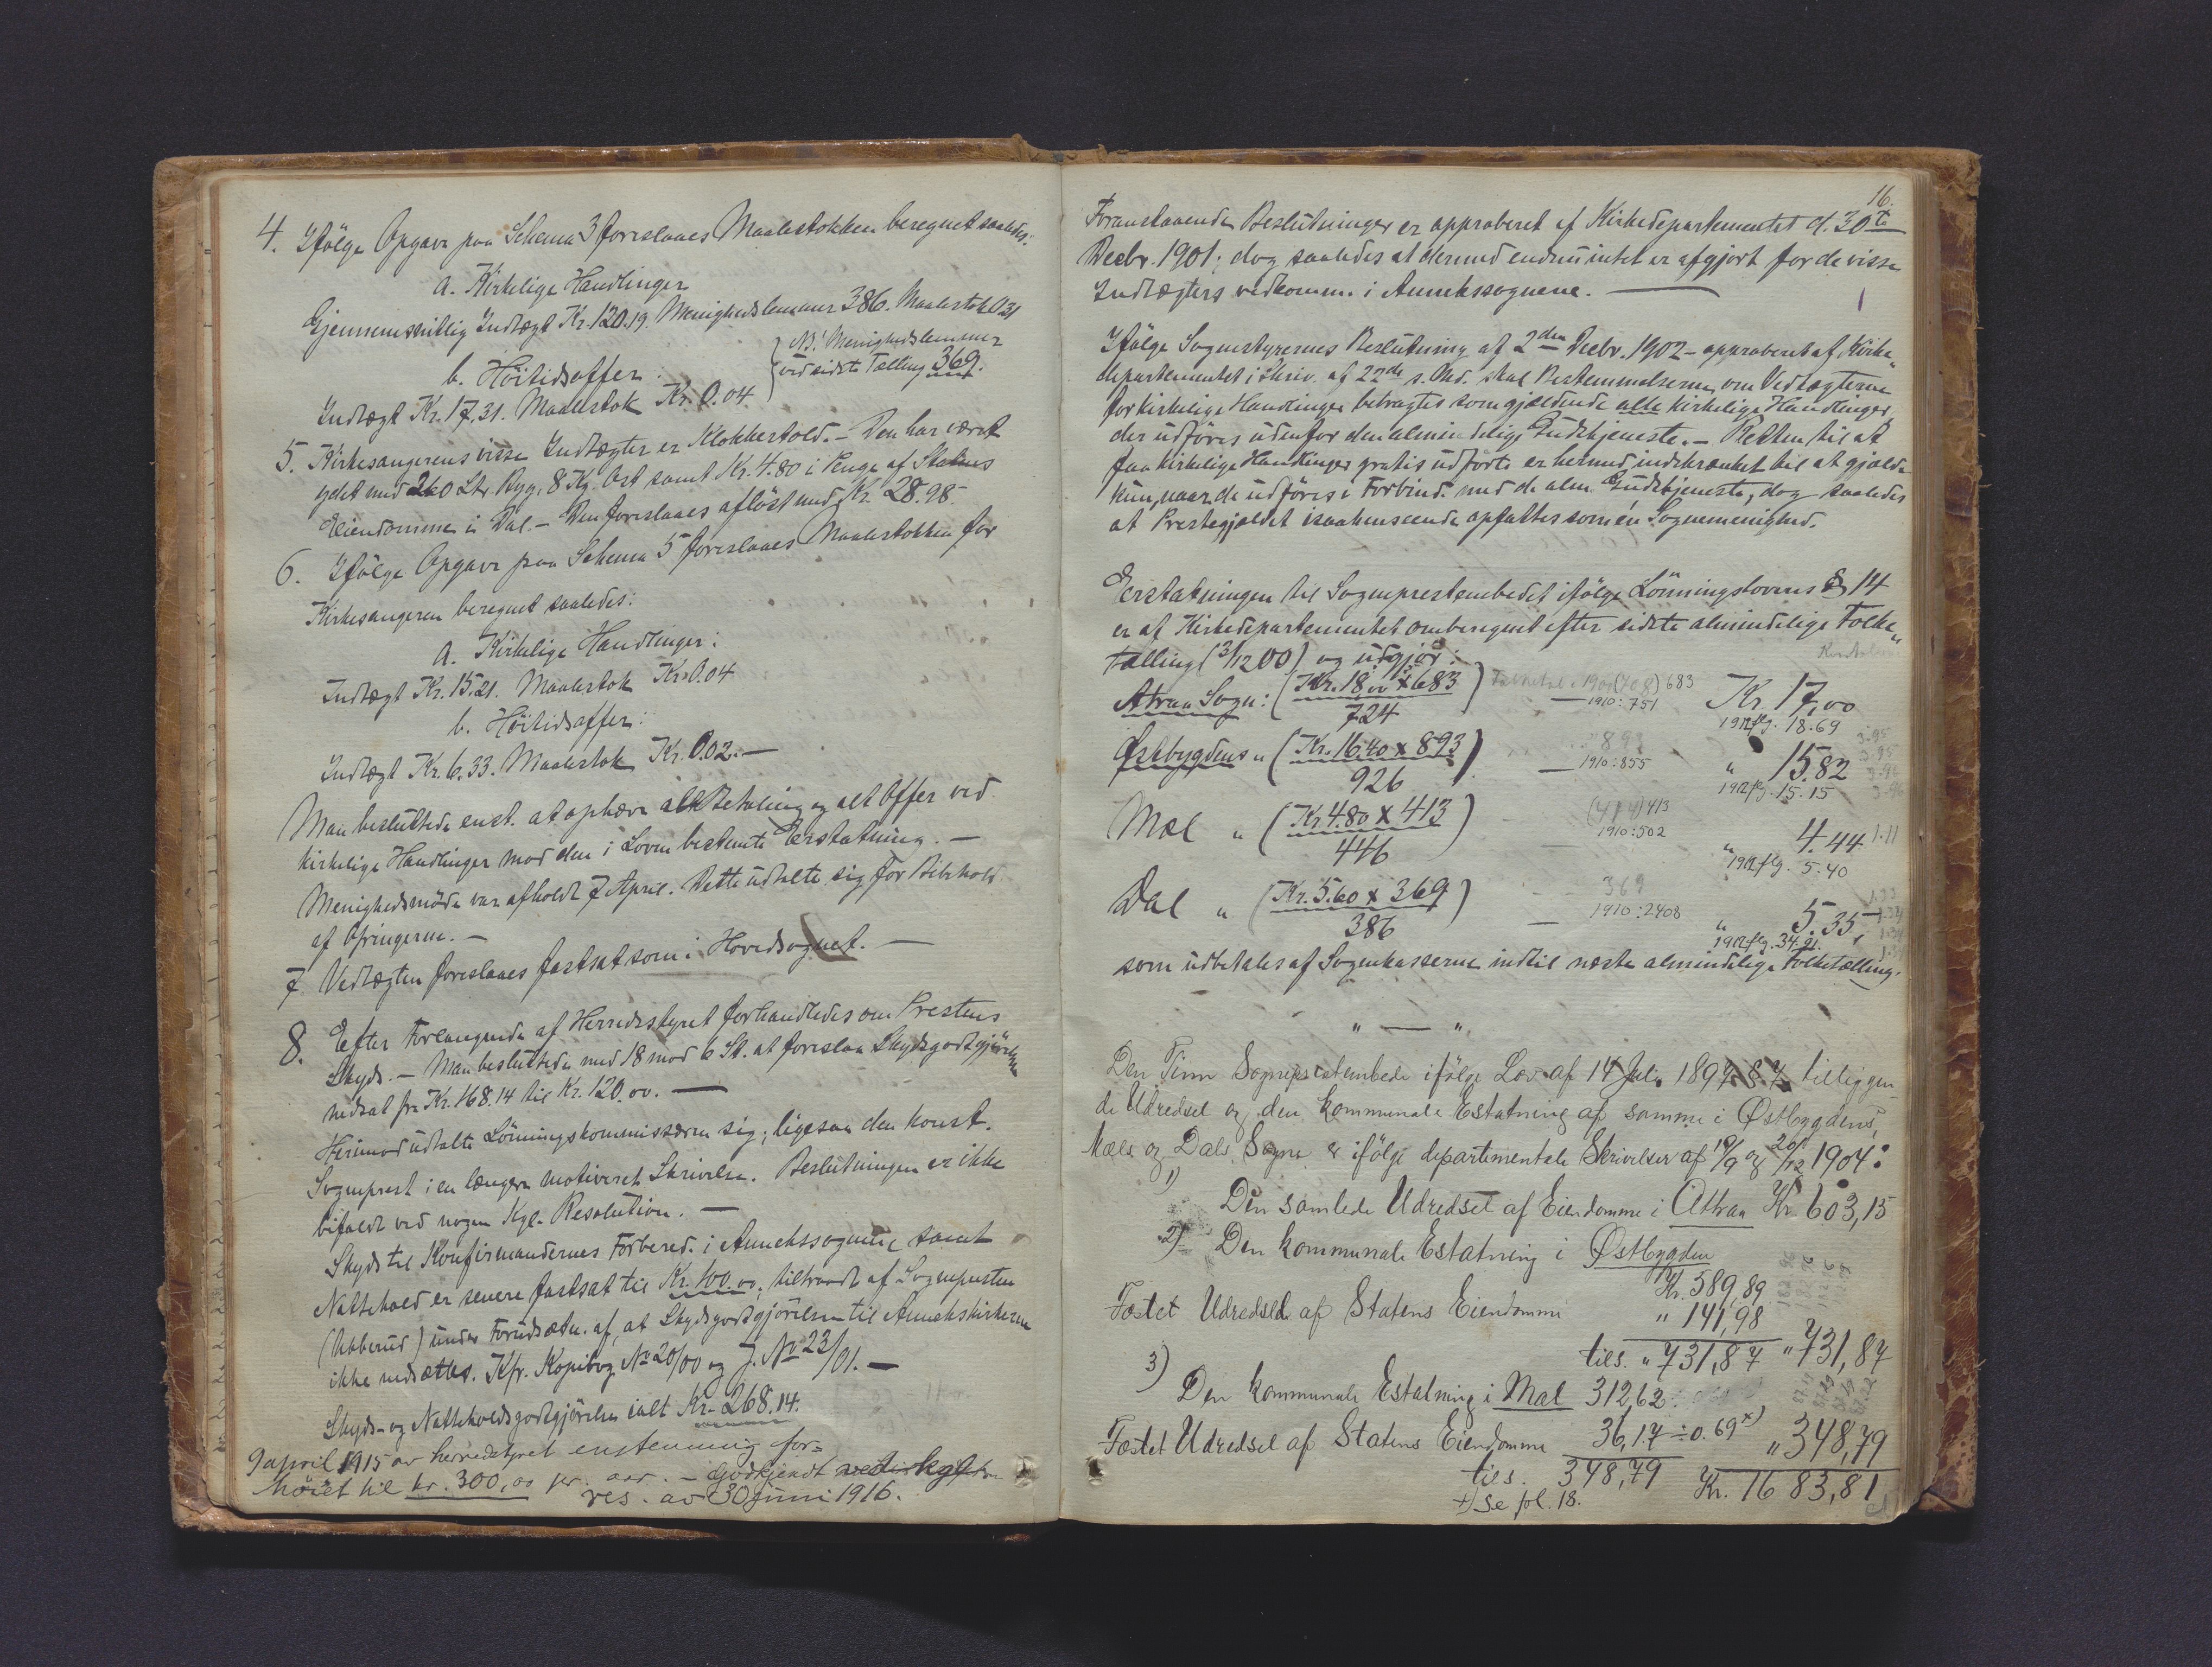 4. Ifölge Opgave paa Schema 3 foreslaaes Maalestokken beregnet saaledes:
a. Kirkelige Handlinger
Gjennemsnitlig Indtægt Kr. 120.19. Menighedslemmer 386. Maalestok 0.31
b. Höitidsoffer:
NB! Menighedslemmer
ved sidste Tælling 369.
Indtægt Kr. 17.31. Maalestok Kr. 0.04.
5. Kirkesangerens visse Indtægter er Klokkertold. – Den har været
ydet med 260 Ltr. Byg, 8 Kg. Ost samt Kr. 4.80 i Penge af Statens
Eiendomme i Dal. – Den foreslaaes aflöst med Kr. 28.98.
6. Ifölge Opgave paa Schema 5 foreslaaes Maalestokken for
Kirkesangeren beregnet saaledes:
a. Kirkelige Handlinger:
Indtægt Kr. 15.21. Maalestok Kr. 0.04
b. Höitidsoffer:
Indtægt Kr. 6.33. Maalestok Kr. 0.02. –
Man besluttede enst. at ophæve al Betaling og alt Offer ved
kirkelige Handlinger mod den i Loven bestemte Erstatning. –
Menighedsmöde var afholdt 7 April. Dette udtalte sig for Bibehold
af Ofringerne. –
7 Vedtægten foreslaaes fastsat som i Hovedsognet. –
8. Efter Forlangende af Herredsstyret forhandledes om Prestens
Skyds. – Man besluttede med 18 mod 6 St. at foreslaa Skydsgodtgjörelsen
nedsat fra Kr. 168.14 til Kr. 120.00. –
Herimod udtalte Lönningskommissæren sig; ligesaa den konst.
Sogneprest i en længere motiveret Skrivelse. Beslutningen er ikke
bifaldt ved nogen Kgl. Resolution. –
Skyds til Konfirmandernes Forbered. i Annekssognene samt
Nattehold er senere fastsat til Kr. 100.00, tiltraadt af Sognepresten
(Ubberud) under Forudsætn. af, at Skydsgodtgjörelsen til Annekskirkerne
ikke nedsættes. Kfr. Kopibog No 20/00 og J. No 23/01. –
Skyds- og Natteholdsgodtgjörelse ialt Kr. 268.14.
9 april 1915 av herredstyret enstemmig for=
höiet til kr. 300,00 pr. aar. – Godkjendt ved kgl.
res. av 30 juni 1916.
16.
Foranstaaende Beslutninger er approberet af Kirkedepartementet d. 30te
Decbr. 1901; dog saaledes at dermed endnu intet er afgjort for de visse
Indtægters vedkomm. i Annekssognene. –
Ifölge Sognestyrernes Beslutning af 2den Decbr. 1902 – approberet af Kirke„
departementet i Skriv. af 22nde s. Md. skal Bestemmelserne om Vedtægterne
for kirkelige Handlinger betragtes som gjældende alle kirkelige Handlinger,
der udföres udenfor den almindelige Gudstjeneste. – Retten til at
faa kirkelige Handlinger gratis udförte er hermed indskrænket til at gjælde
kun, naar de udföres i Forbind. med de alm. Gudstjeneste, dog saaledes
at Prestegjældet i saahenseende opfattes som én Sognemenighed.
Erstatningen til Sogneprestembedet ifölge Lönningslovens § 14
er af Kirkedepartementet omberegnet efter sidste almindelige Folke„
tælling (3/12 00) og udgjör:
Atraa Sogn: (Kr. 18.00 x 683) Folketal 1900 (708) 683 Kr. 17,00
724 1910: 751 1912 flg. 18.69
Østbygdens „ (Kr. 16.40 x 893) 893 „ 15.82
926 1910: 855 1912 flg. 15.15
Mæl „ (Kr 4.80 x 413) (414) 413 „ 4.44 1.11
446 1910: 502 1912 flg. 5.40
Dal „ (Kr. 5.60 x 369) 369 „ 5.35
386 1910: 2408 1912 flg. 34.91.
som udbetales af Sognekasserne indtil næste almindelige Folketælling.
„ — „
Den Tinn Sogneprestembede ifölge Lov af 14 Juli 1897 § 7 tilliggen
de Udredsel og den kommunale Estatning af samme i Østbygdens,
Mæls og Dals Sogne er ifölge departementale Skrivelser af 19/9 og 20/12 1904:
1) Den samlede Udredsel af Eiendomme i Attraa Kr. 603,15
2) Den kommunale Estatning i Østbygden
Kr. 589,89
Fastet Udredsel af Statens Eiendomme „ 141,98
tils. „ 731,87 „ 731,87
3) Den kommunale Estatning i Mæl 312,62
Fastet Udredsel af Statens Eiendomme 36,17 ÷ 0.69 x) „ 348,79
tils. 348,79 Kr. 1683,81
x) se fol. 18.